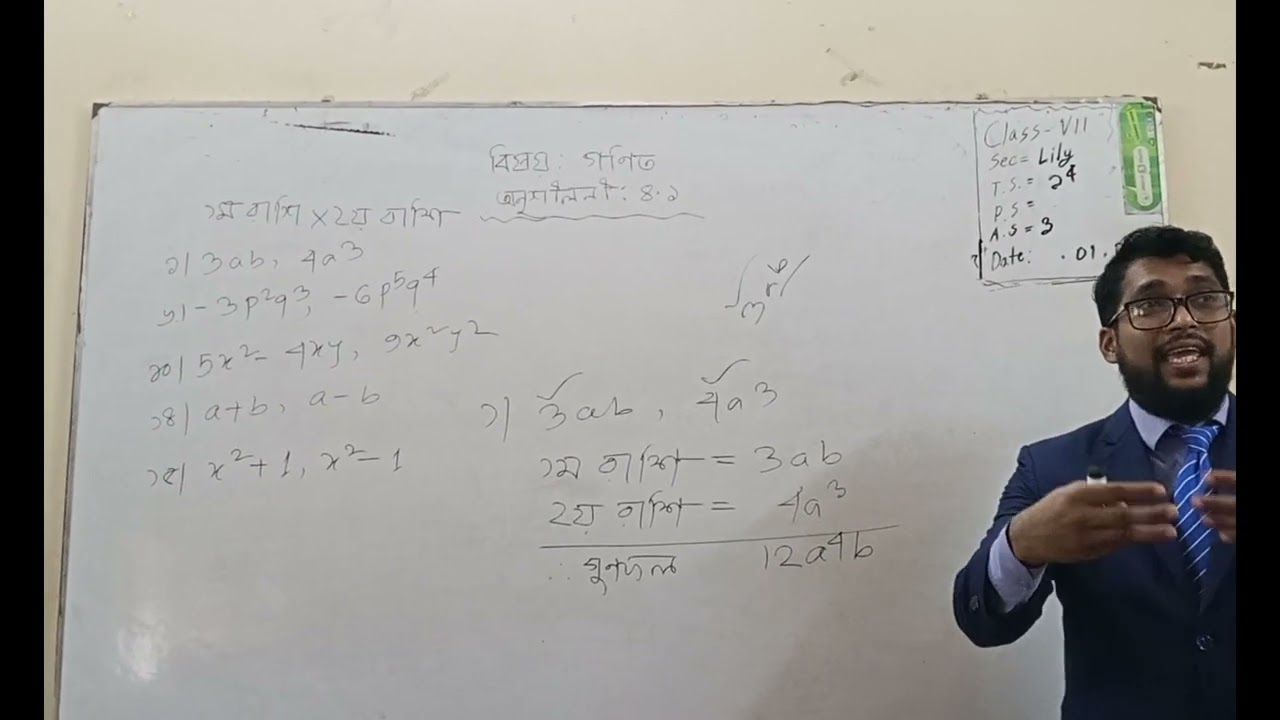 বিষয়: গনিত
অনুশীলনী: ৪.১
১ম রাশি × ২য় রাশি
১| 3ab, 4a³
৮| -3p²q³, -6p⁵q⁴
১০| 5x² - 4xy, 9x²y²
১৪| a+b, a-b
১৫| x²+1, x²-1
১| 3ab, 4a³
১ম রাশি = 3ab
২য় রাশি = 4a³
∴ গুণফল 12a⁴b
Class-VII
Sec= Lily
T.S.= 24
P.S =
A.S = 3
Date: .01.